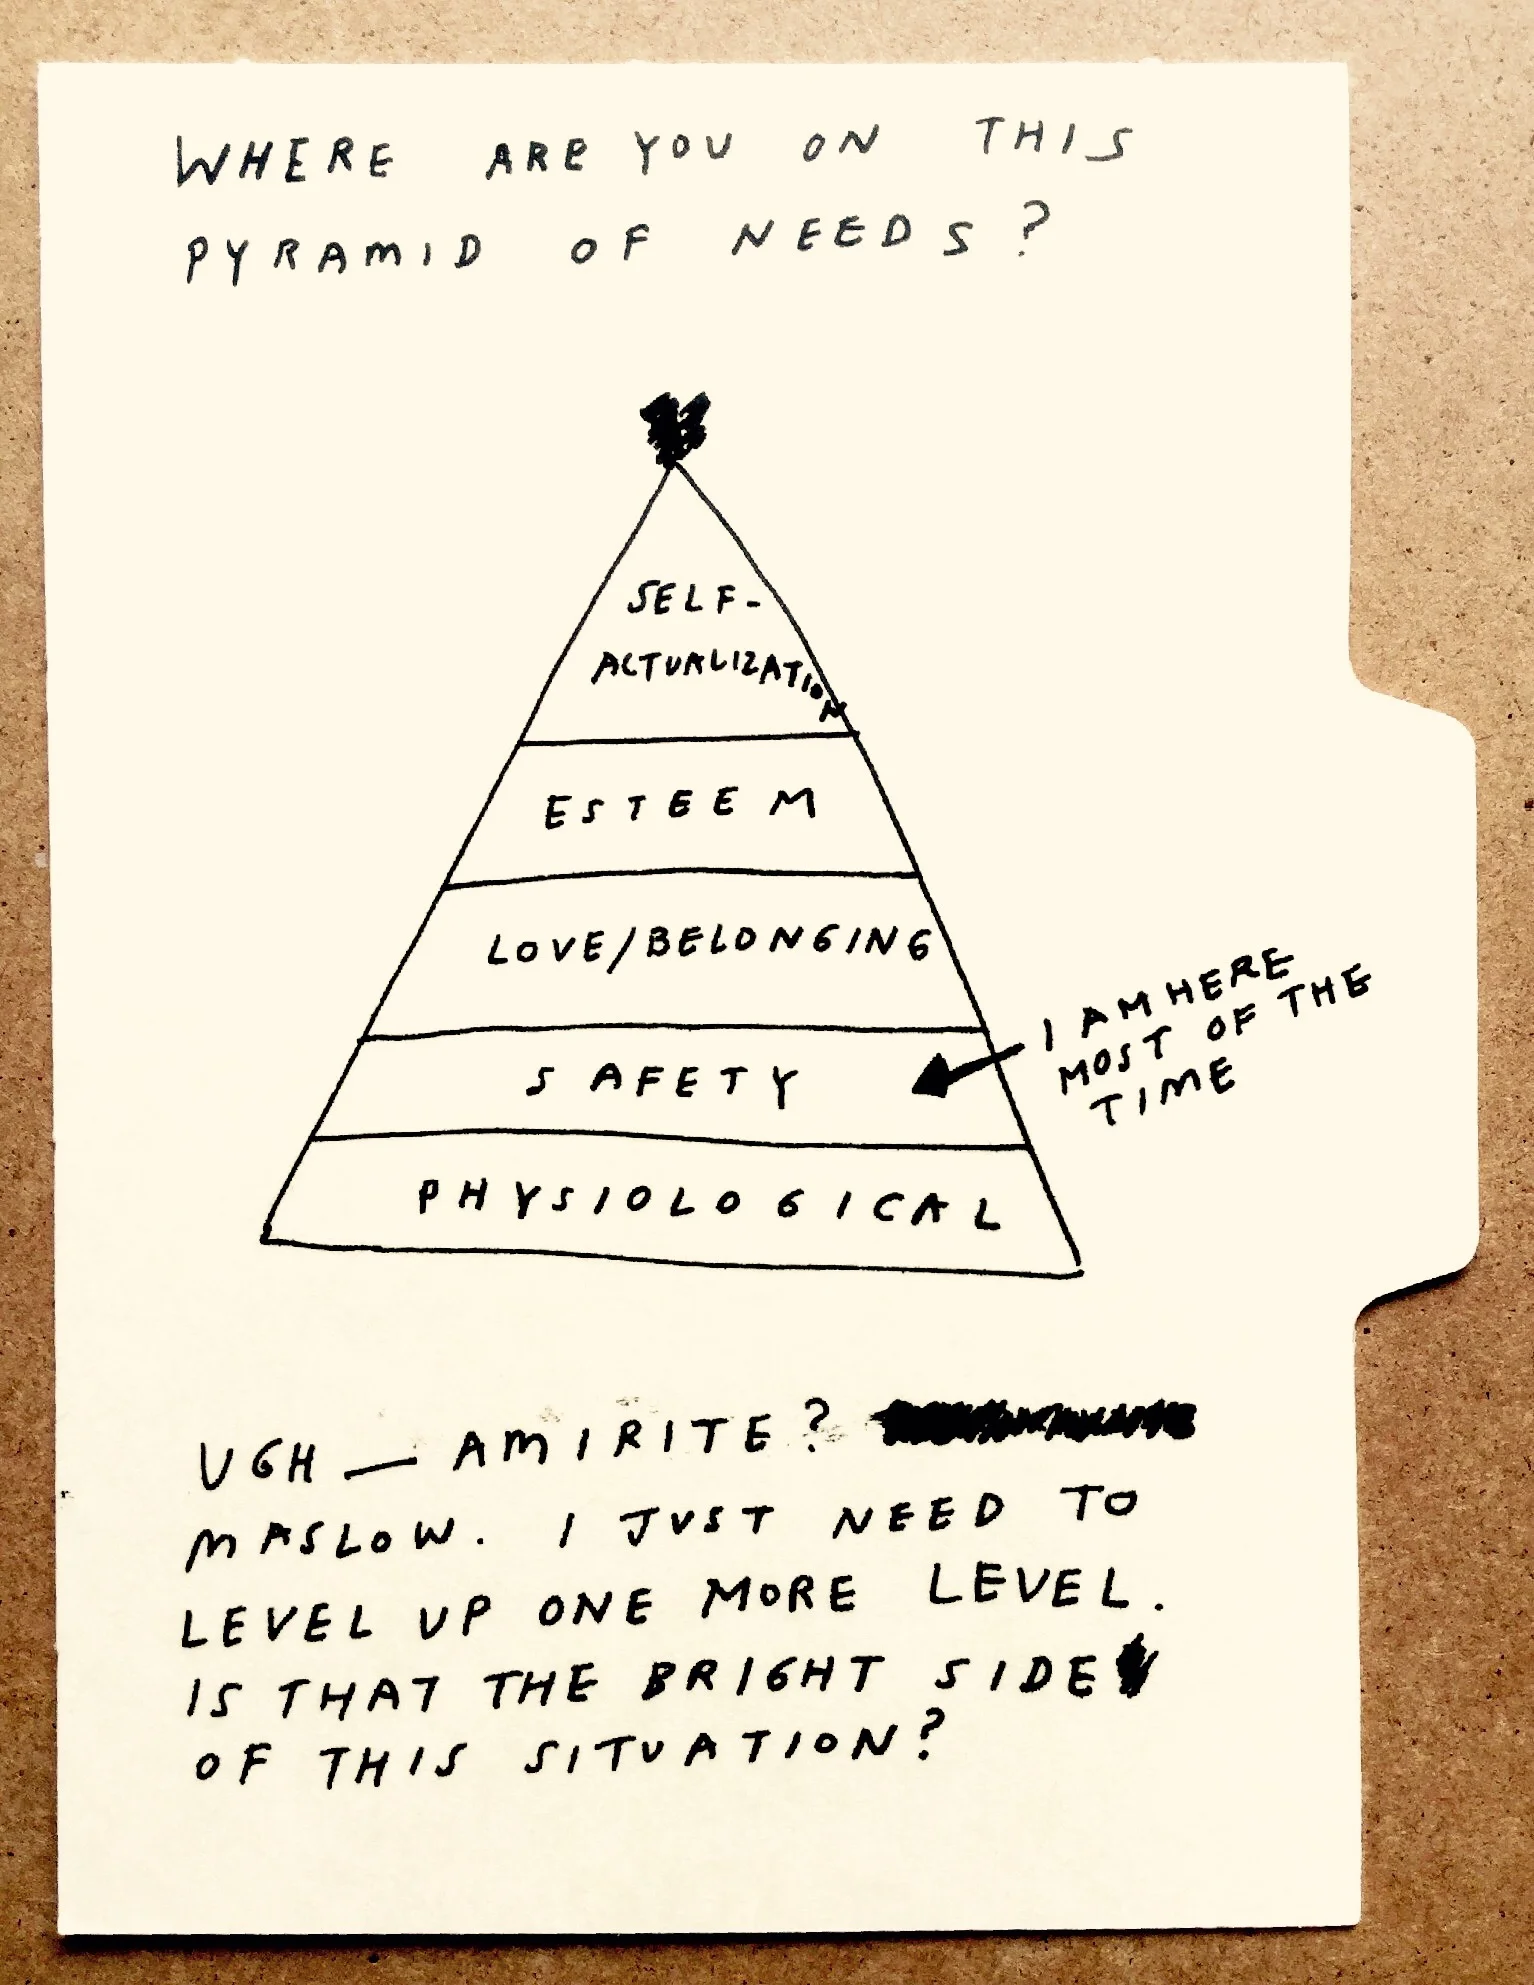 WHERE ARE YOU ON THIS
PYRAMID OF NEEDS?
SELF-
ACTUALIZATION
ESTEEM
LOVE/BELONGING
SAFETY
PHYSIOLOGICAL
I AM HERE
MOST OF THE
TIME
UGH — AMIRITE?
MASLOW. I JUST NEED TO
LEVEL UP ONE MORE LEVEL.
IS THAT THE BRIGHT SIDE
OF THIS SITUATION?